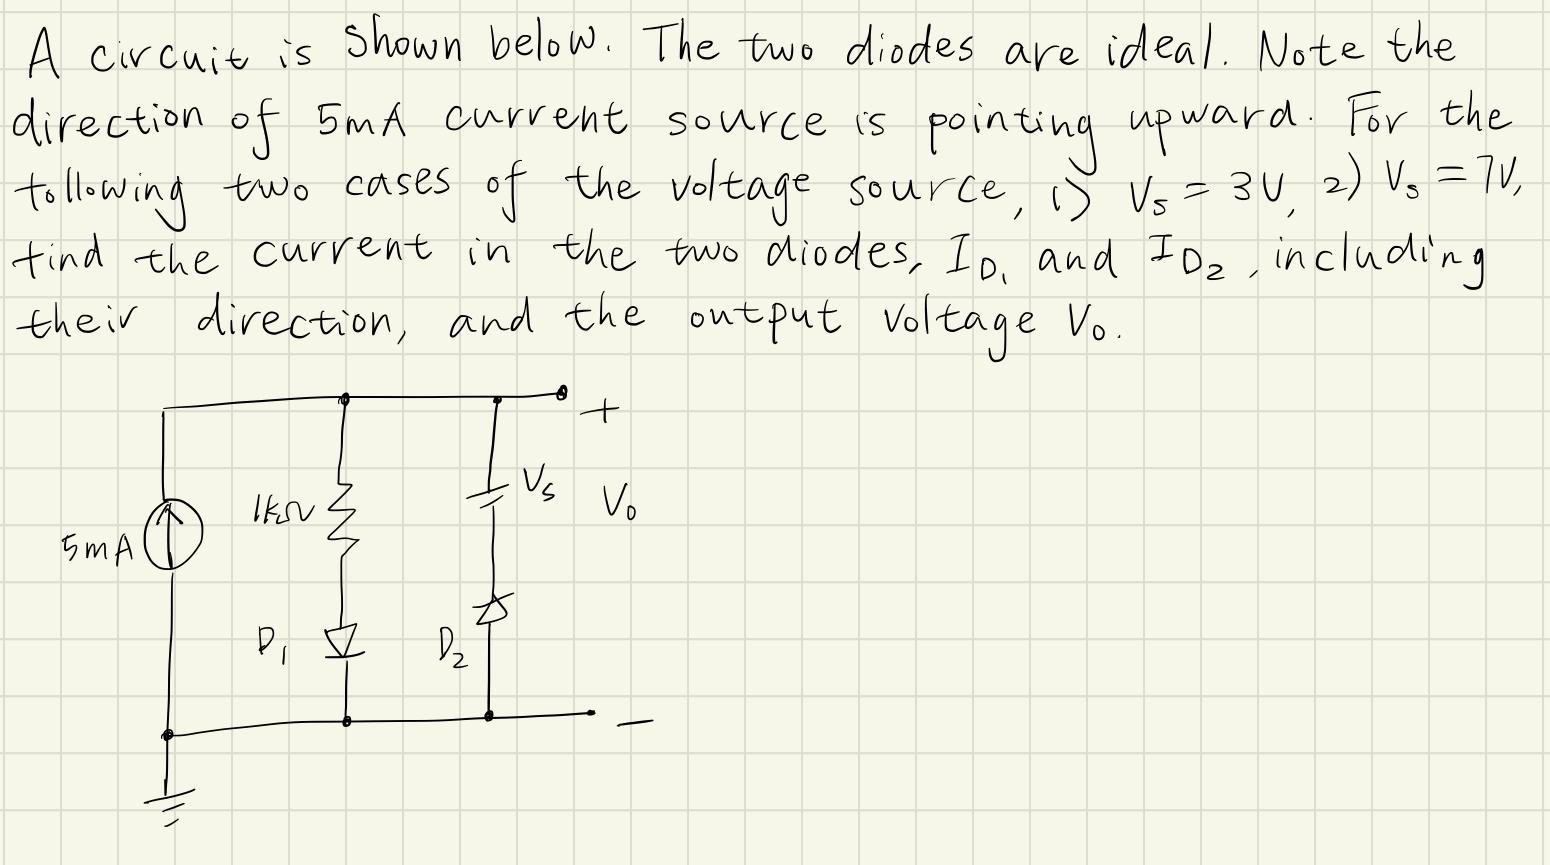 A circuit is shown below. The two diodes are ideal. Note the
direction of 5mA current source is pointing upward. For the
following two cases of the voltage source, 1) Vs = 3V, 2) Vs = 7V,
find the current in the two diodes, ID1 and ID2, including
their direction, and the output voltage Vo.
+
Vs
1kΩ
Vo
5mA
D1
D2
−